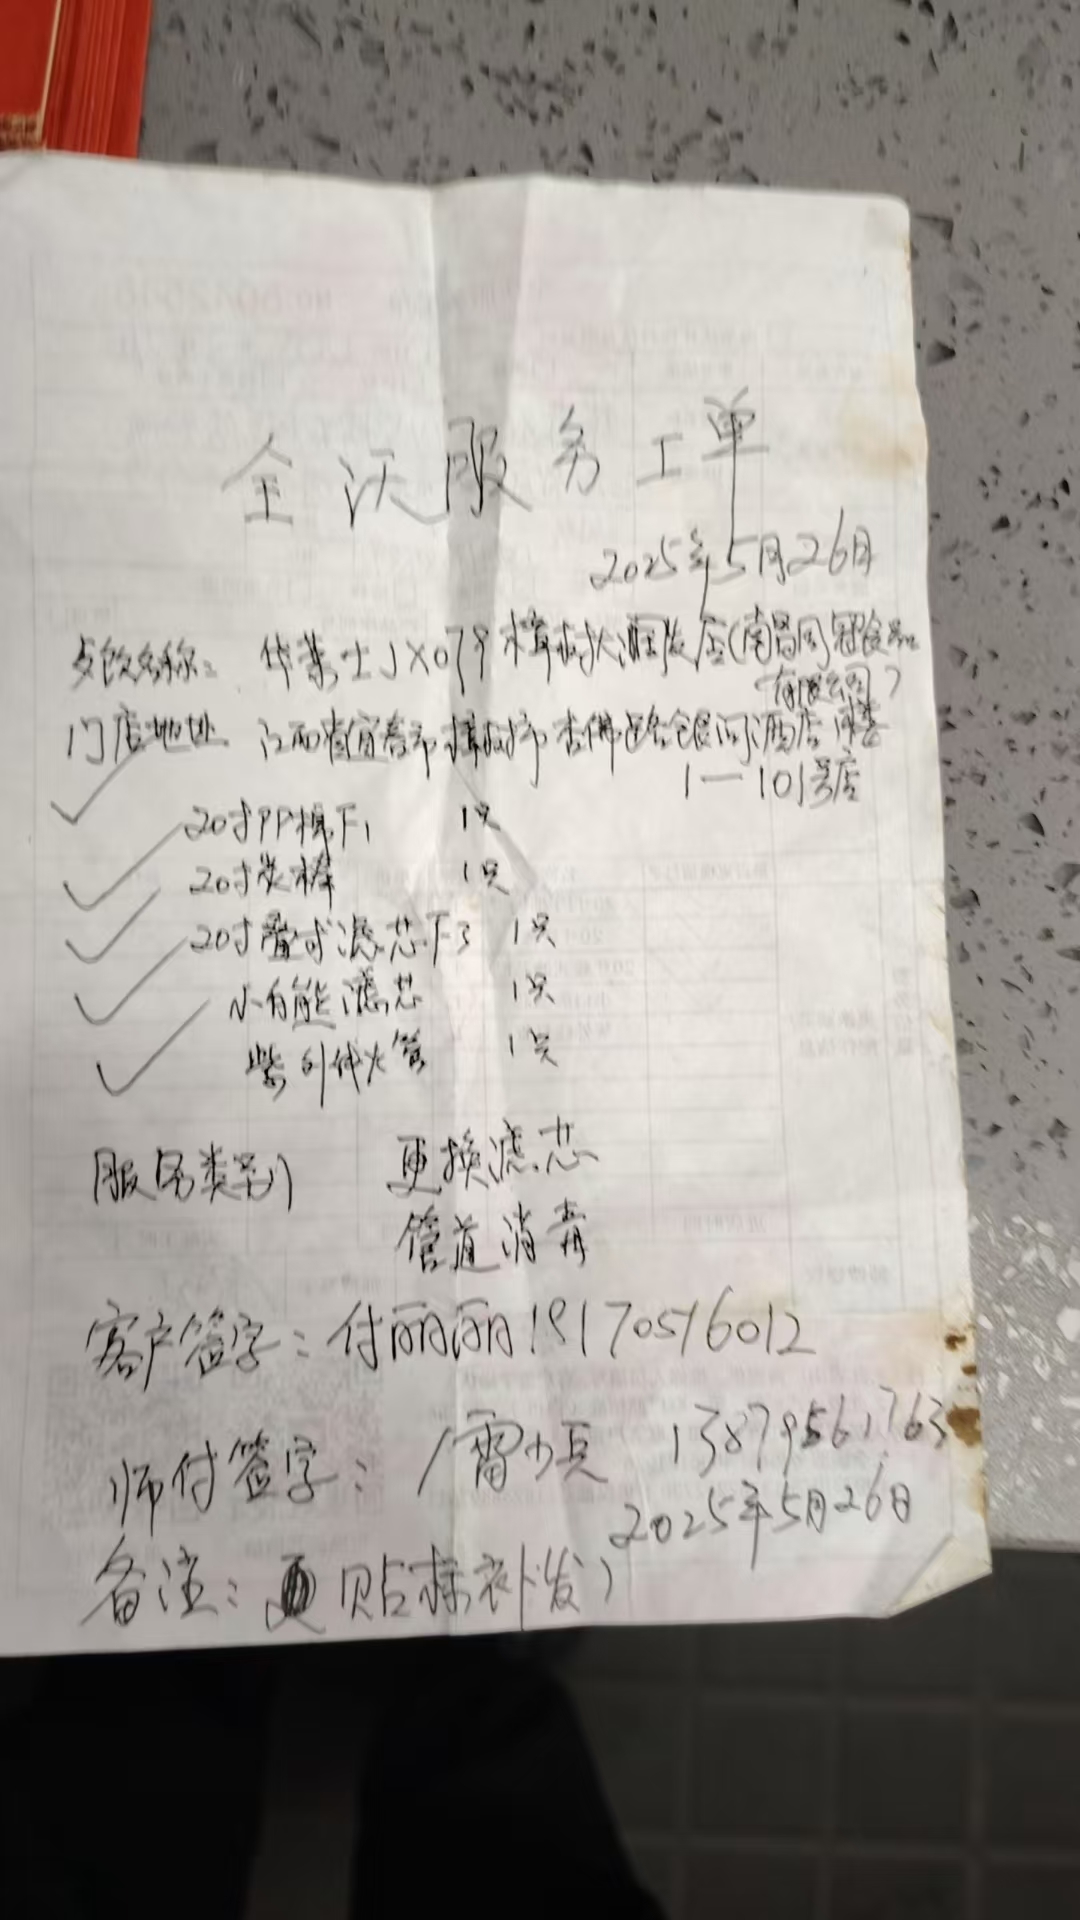 全沃服务工单
2025年5月26日
餐饮名称: 华莱士JX079樟树大润发店(南昌冈冠食品
有限公司)
门店地址 江西省宜春市樟树市杏佛路银河酒店
1—101号店
20寸PP棉F1 1只
20寸炭棒 1只
20寸叠式滤芯F3 1只
小白能滤芯 1只
紫外线火管 1只
服务类别 更换滤芯
管道消毒
客户签字: 付丽丽 19170516012
师付签字: 雷小兵 13879561763
2025年5月26日
备注: 贴标衣补发